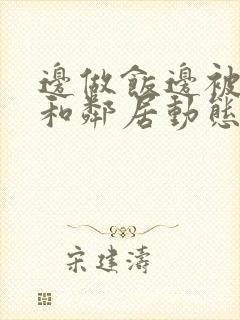 邊做飯邊被
和鄰居動態
宋建濤